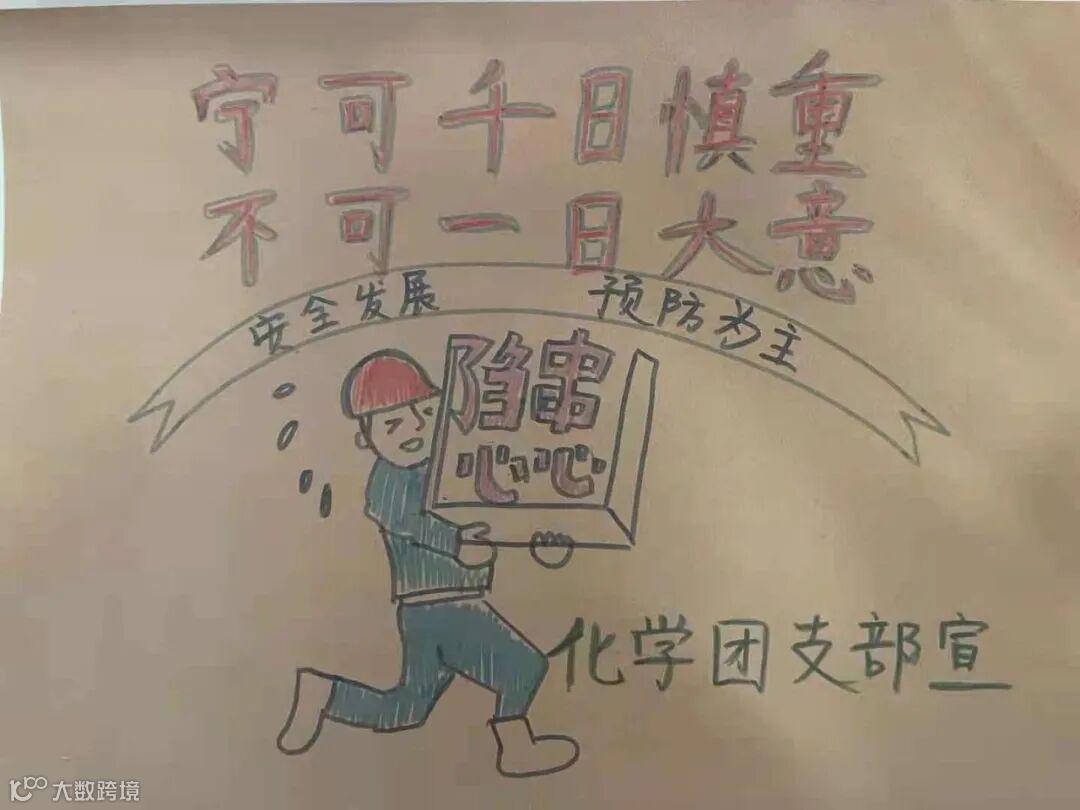 宁可千日慎重
不可一日大意
安全发展 预防为主
隐患
化学团支部宣
大数跨境